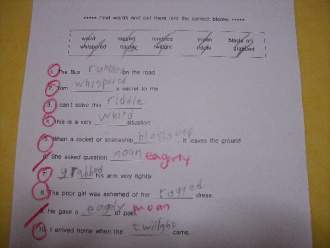 ***** Find words and put them into the correct blanks *****
weird ragged rumbled moan blasts off
whispered eagerly twilight riddle grabbed
1. The Bus rumbled on the road.
2. Tom whispered a secret to me
3. I can't solve this riddle
4. This is a very weird situation
5. When a rocket or spaceship blasts off it leaves the ground
6. She asked question moan eagerly
7. grabbed his arm very tightly
8. The poor girl was ashamed of her ragged dress.
9. He gave a eagerly of pain. moan
10. I arrived home when the twilight came.